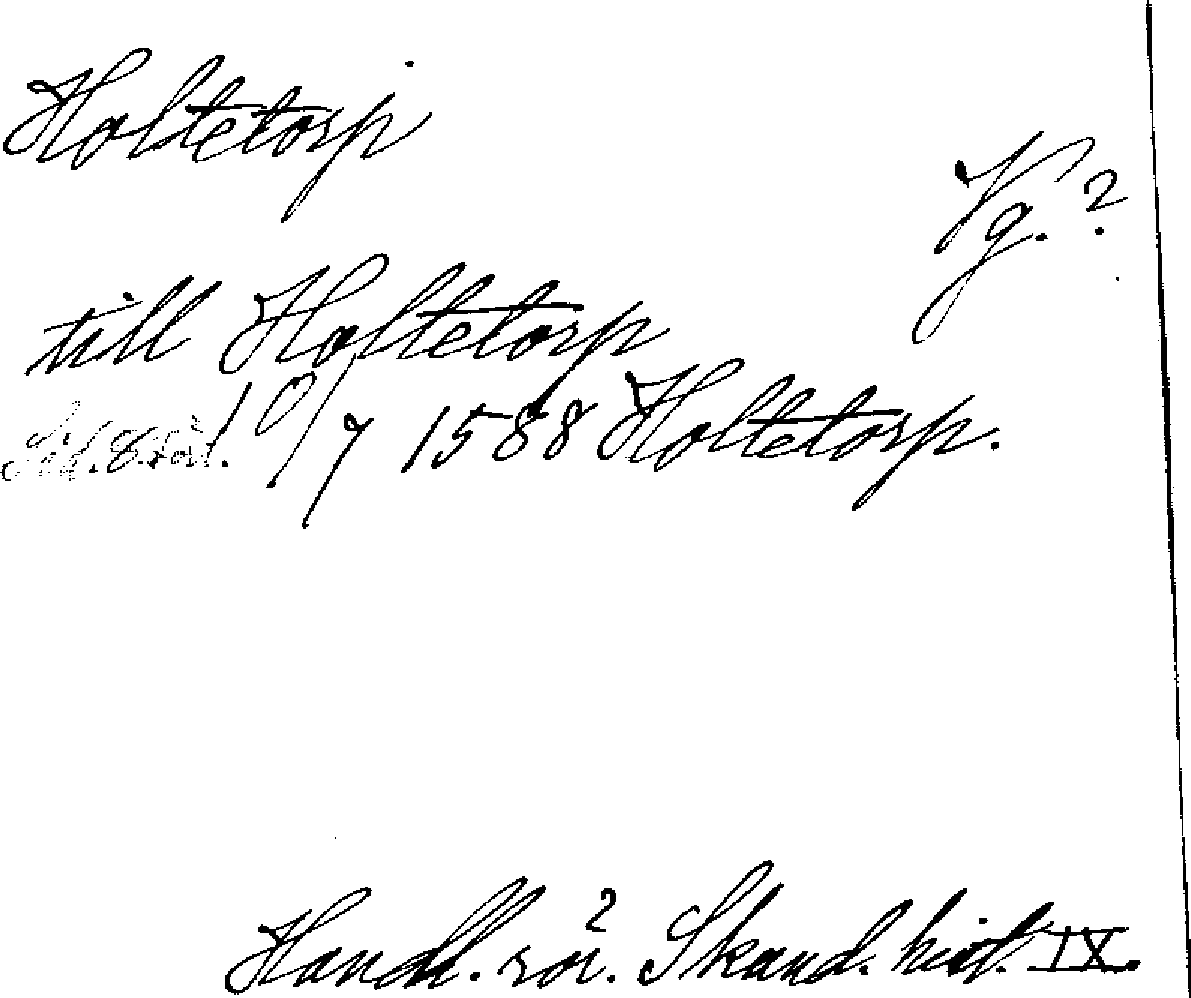 Holtetorp
Vg. ?
till Holtetorp
10/7 1588 Holtetorp.
Handl. rör. Skand. hist. IX.